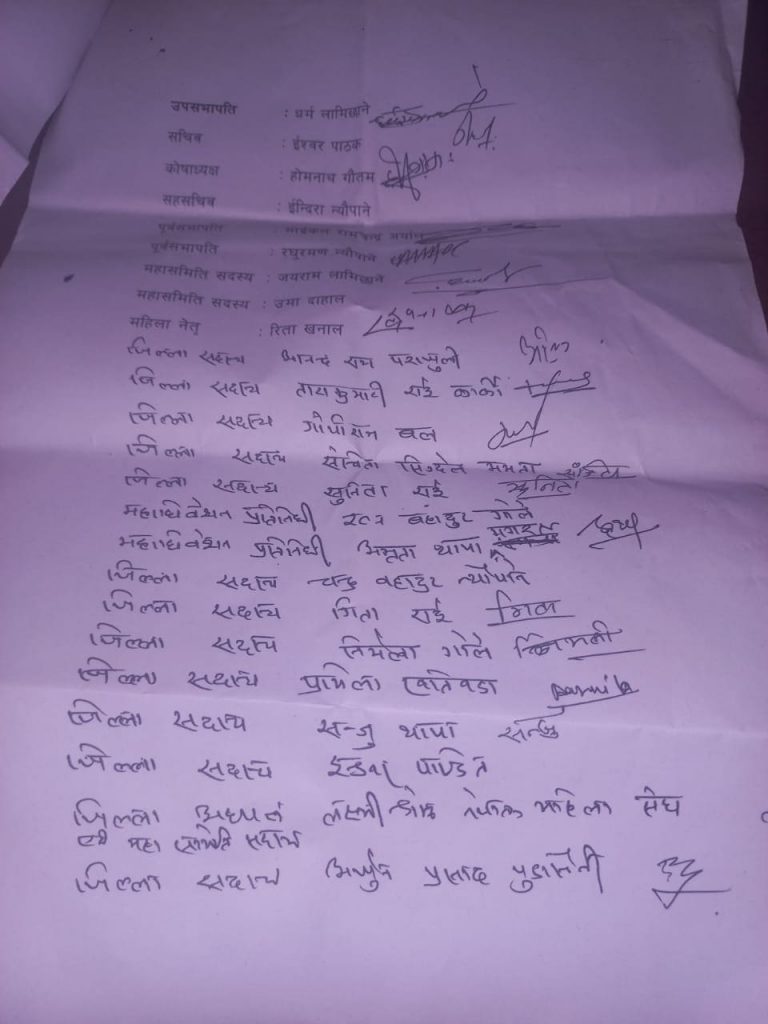 उपसभापति : धर्म लामिछाने
सचिव : ईश्वर पाठक
कोषाध्यक्ष : होमनाथ गौतम
सहसचिव : ईन्दिरा न्यौपाने
पूर्वसभापति :
पूर्वसभापति : रघुरमण न्यौपाने
महासमिति सदस्य : जयराम लामिछाने
महासमिति सदस्य : उमा दाहाल
महिला नेतृ : रिता खनाल
जिल्ला सदस्य
जिल्ला सदस्य ताराकुमारी राई कार्की
जिल्ला सदस्य गोपीराज वल
जिल्ला सदस्य
जिल्ला सदस्य सुनिता राई सुनिता
महाधिवेशन प्रतिनिधी रत्न बहादुर गोले
महाधिवेशन प्रतिनिधी अमृता थापा मगर
जिल्ला सदस्य चन्द्र बहादुर न्यौपाने
जिल्ला सदस्य गिता राई गिता
जिल्ला सदस्य निर्मला गोले
जिल्ला सदस्य प्रमिला parmila
जिल्ला सदस्य सन्जु थापा सन्जु
जिल्ला सदस्य पण्डित
जिल्ला लक्ष्मी नेपाल महिला संघ
एवं महा समिति सदस्य
जिल्ला सदस्य प्रसाद पुडासैनी